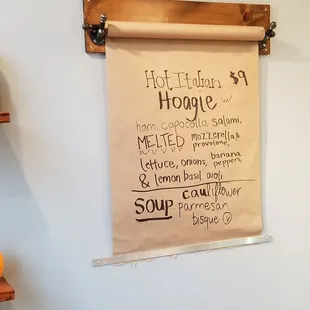 Hot Italian $9
Hoagie w/
ham, capocolla, salami,
MELTED mozzerella & provolone,
lettuce, onions, banana peppers,
& lemon basil aioli
SOUP cauliflower
parmesan
bisque